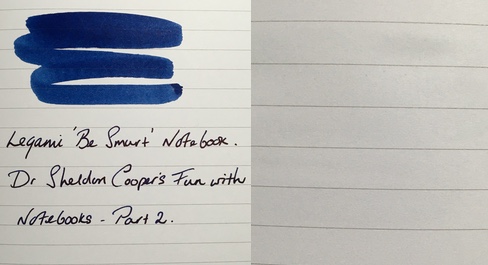 Legami 'Be Smart' Notebook.
Dr Sheldon Cooper's Fun with
Notebooks - Part 2.